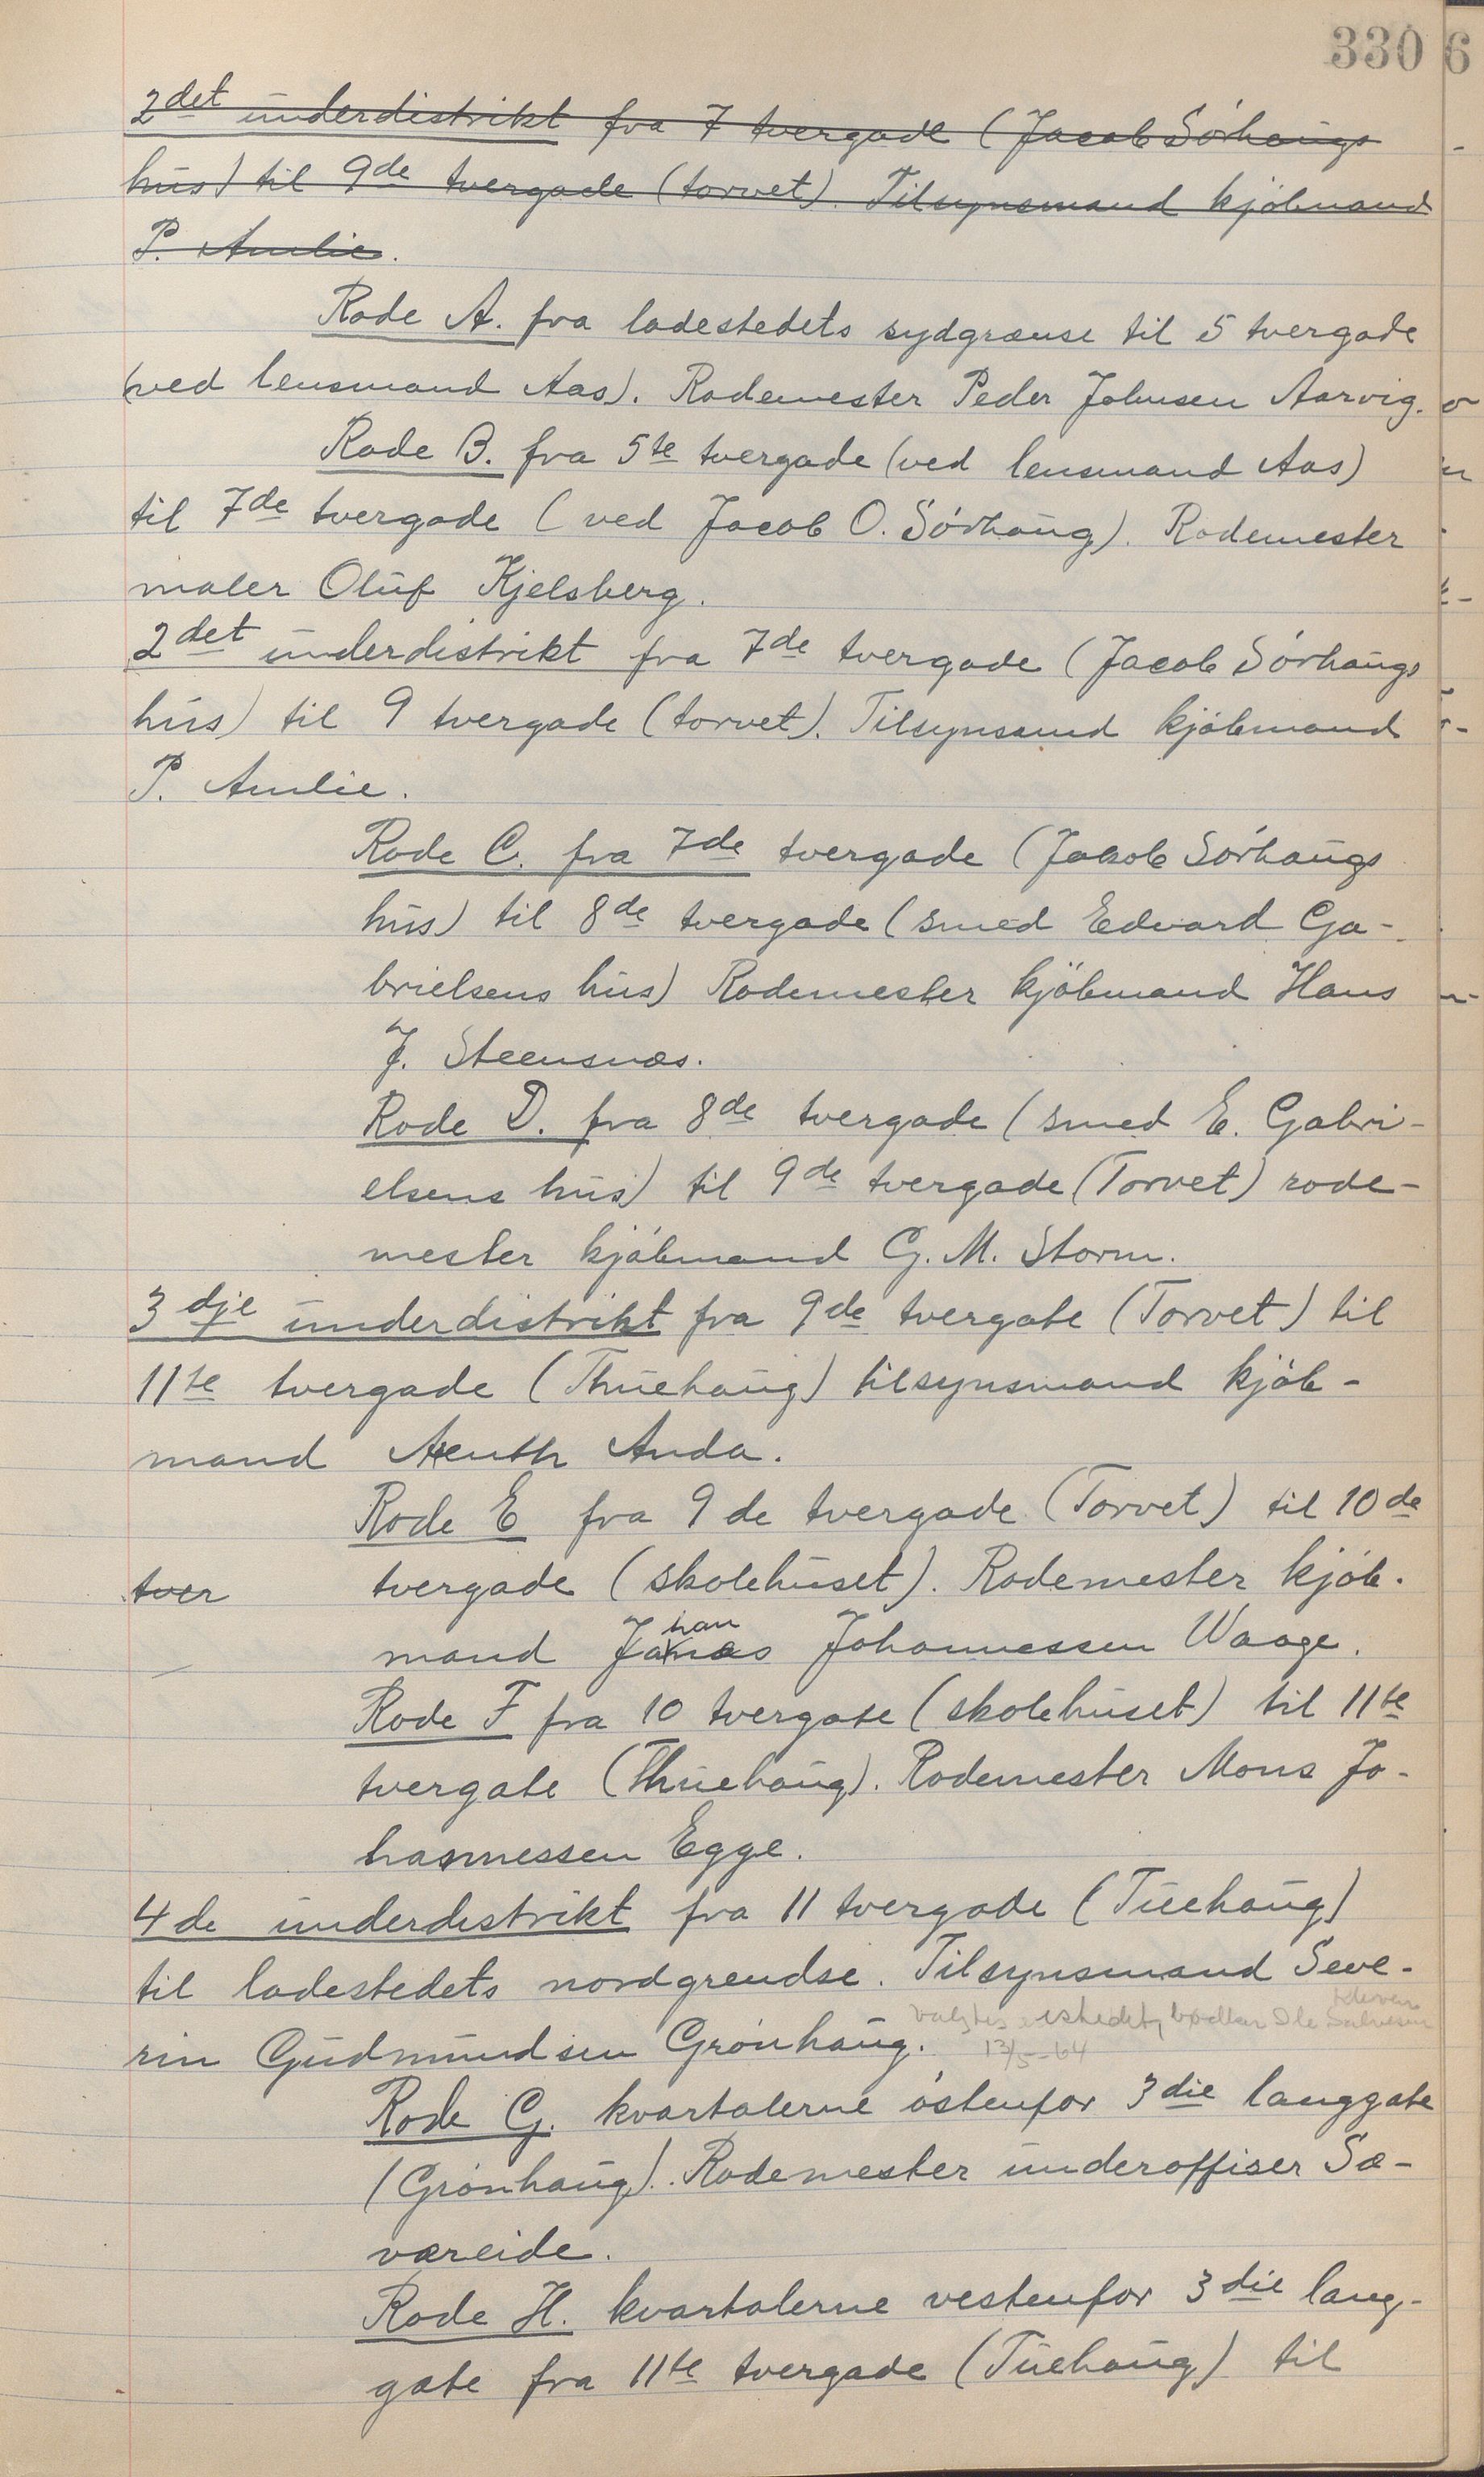 330
6
2det underdistrikt fra 7 tvergade (Jacob Sörhaugs
hus) til 9de tvergade (torvet). Tilsynsmand kjöbmand
P. Amlie.
Rode A. fra ladestedets sydgrænse til 5 tvergade
(ved lensmand Aas). Rodemester Peder Johnsen Aarvig.
Rode B. fra 5te tvergade (ved lensmand Aas)
til 7de tvergade (ved Jacob O. Sörhaug). Rodemester
maler Oluf Kjelsberg.
2det underdistrikt fra 7de tvergade (Jacob Sörhaugs
hus) til 9 tvergade (torvet). Tilsynsmd kjöbmand
P. Amlie.
Rode C. fra 7de tvergade (Jakob Sörhaugs
hus) til 8de tvergade (smed Edvard Ga-
brielsens hus) Rodemester kjöbmand Hans
J. Steensnæs.
Rode D. fra 8de tvergade (smed E. Gabri-
elsens hus) til 9de tvergade (Torvet) rode-
mester kjöbmand G. M. Storm.
3dje underdistrikt fra 9de tvergate (Torvet) til
11te tvergade (Thuehaug) tilsynsmand kjöb-
mand Anda.
Rode E fra 9de tvergade (Torvet) til 10de
tver tvergade (skolehuset). Rodemester kjöb-
han
mand Johannessen Waage.
Rode F fra 10 tvergate (skolehuset) til 11te
tvergate (Thuehaug). Rodemester Mons Jo-
hannessen Egge.
4de underdistrikt fra 11 tvergade (Tuehaug)
til ladestedets nordgrendse. Tilsynsmand Seve-
rin Gudmundsen Grönhaug. valgtes istedet, bødker Ole
13/5-64
Rode G. kvartalerne östenfor 3die langgate
(Grönhaug). Rodemester underoffiser Sæ-
vareide.
Rode H. kvartalerne vestenfor 3die lang-
gate fra 11te tvergade (Tuehaug) til